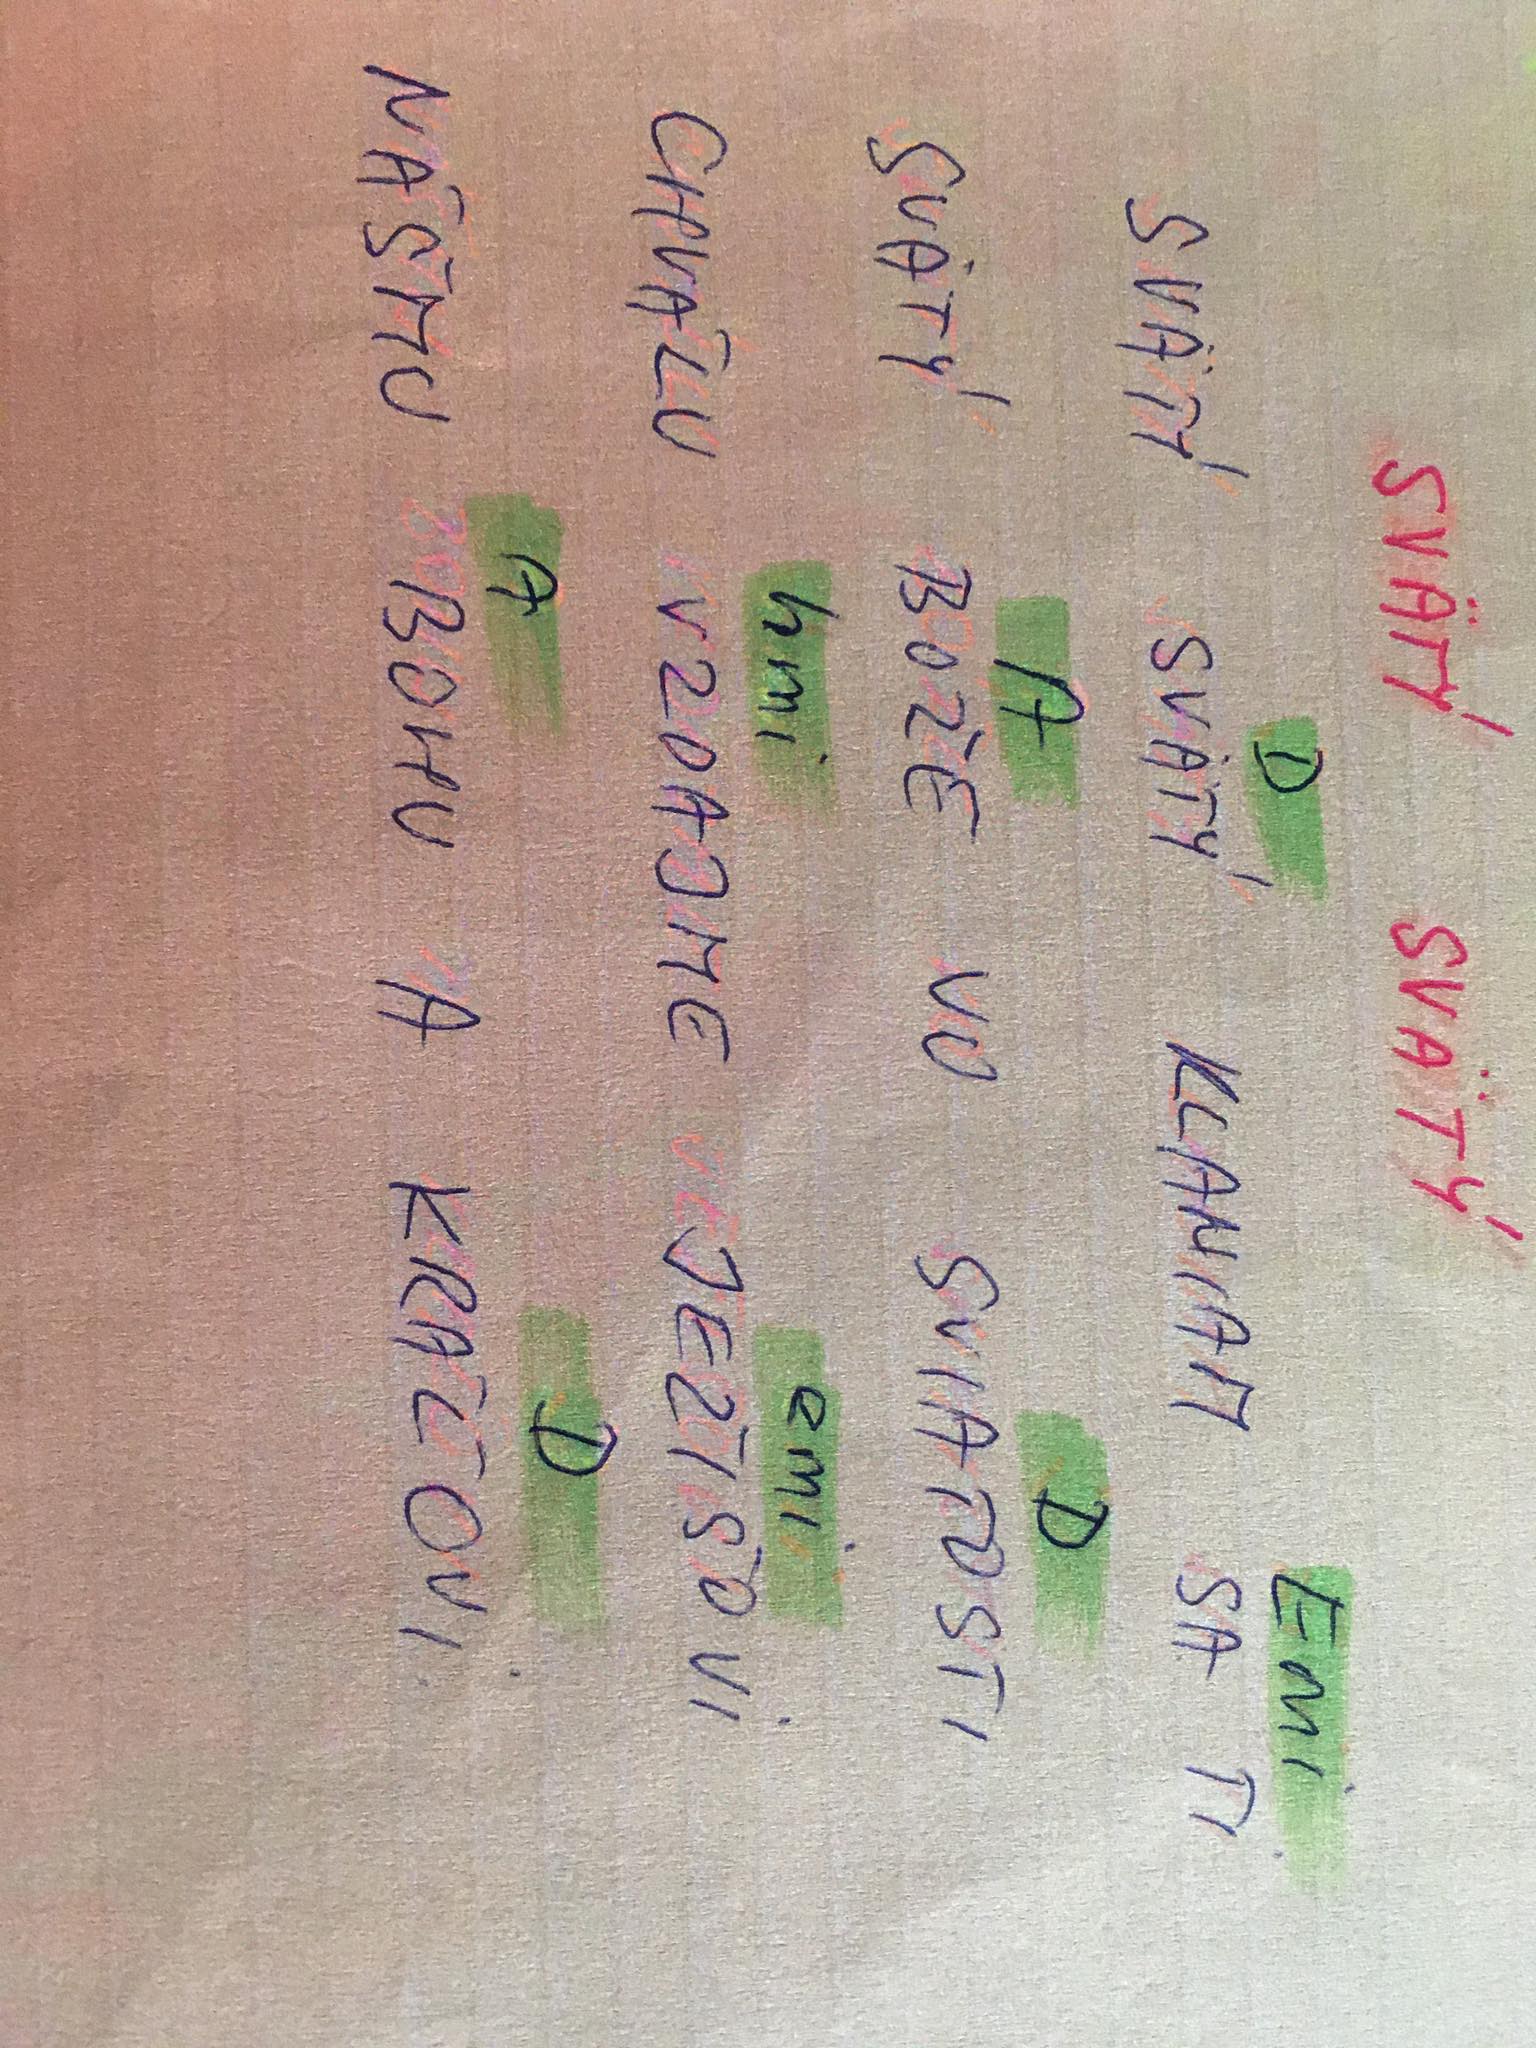 SVÄTÝ SVÄTÝ
D Emi
SVÄTÝ SVÄTÝ KLANIAM SA TI
A D
SVÄTÝ BOŽE VO SVIATOSTI
hmi emi
CHVÁLU VZDAJME JEŽIŠOVI
A D
NÁŠMU BOHU A KRÁĽOVI.